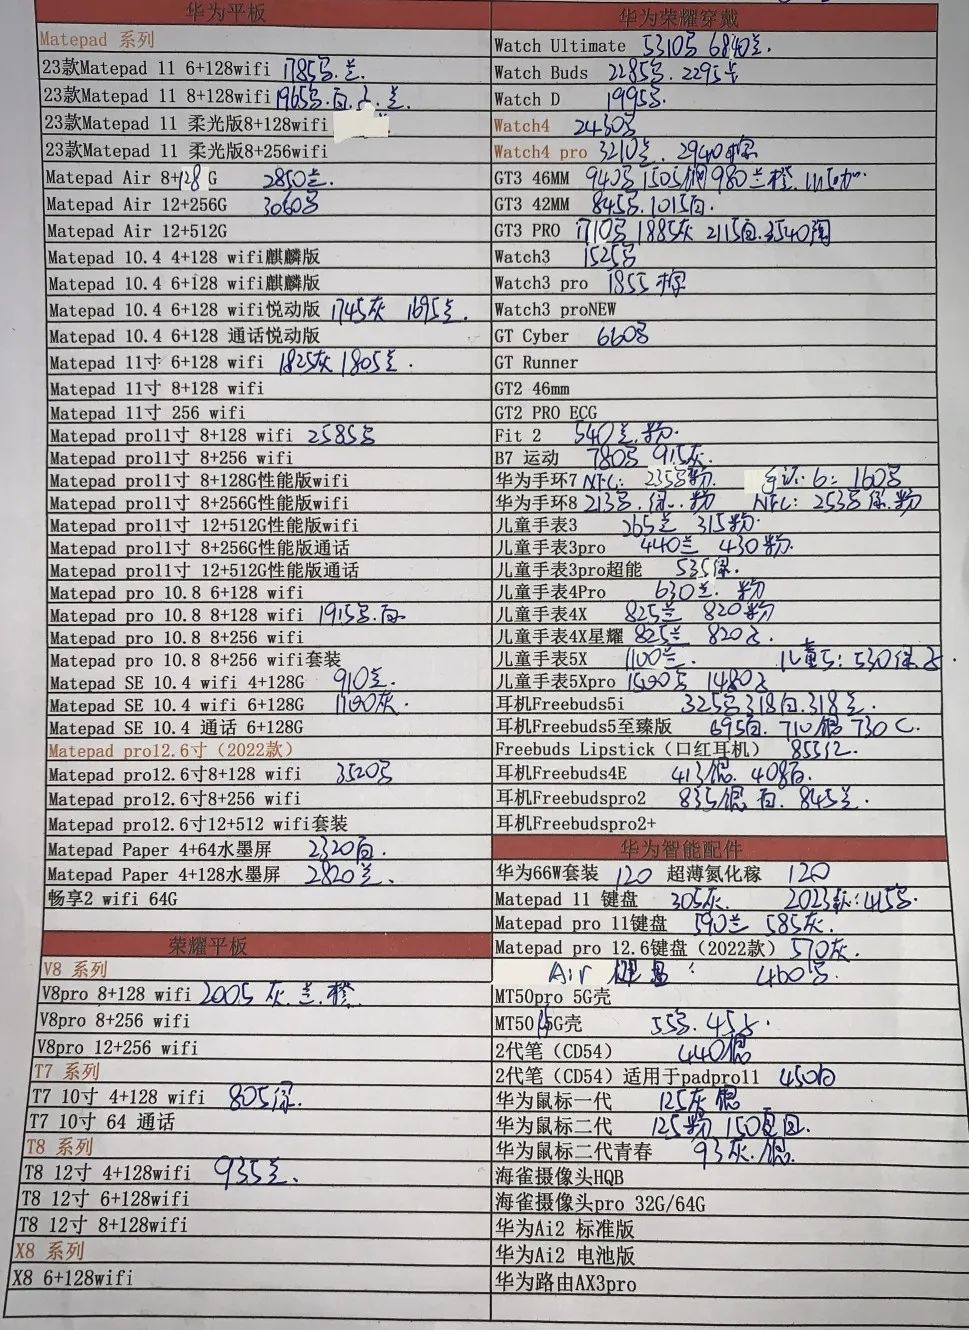 华为平板
Matepad 系列
23款Matepad 11 6+128wifi 1785黑.兰.
23款Matepad 11 8+128wifi 1965黑.白.兰.
23款Matepad 11 柔光版8+128wifi
23款Matepad 11 柔光版8+256wifi
Matepad Air 8+128 G 2850兰.
Matepad Air 12+256G 3060黑
Matepad Air 12+512G
Matepad 10.4 4+128 wifi麒麟版
Matepad 10.4 6+128 wifi麒麟版
Matepad 10.4 6+128 wifi悦动版 1745灰 1695兰.
Matepad 10.4 6+128 通话悦动版
Matepad 11寸 6+128 wifi 1825灰 1805兰.
Matepad 11寸 8+128 wifi
Matepad 11寸 256 wifi
Matepad pro11寸 8+128 wifi 2585黑
Matepad pro11寸 8+256 wifi
Matepad pro11寸 8+128G性能版wifi
Matepad pro11寸 8+256G性能版wifi
Matepad pro11寸 12+512G性能版wifi
Matepad pro11寸 8+256G性能版通话
Matepad pro11寸 12+512G性能版通话
Matepad pro 10.8 6+128 wifi
Matepad pro 10.8 8+128 wifi 1915黑.白
Matepad pro 10.8 8+256 wifi
Matepad pro 10.8 8+256 wifi套装
Matepad SE 10.4 wifi 4+128G 910兰.
Matepad SE 10.4 wifi 6+128G 1100灰.
Matepad SE 10.4 通话 6+128G
Matepad pro12.6寸(2022款)
Matepad pro12.6寸8+128 wifi 3520黑
Matepad pro12.6寸8+256 wifi
Matepad pro12.6寸12+512 wifi套装
Matepad Paper 4+64水墨屏 2320白.
Matepad Paper 4+128水墨屏 2820兰.
畅享2 wifi 64G
荣耀平板
V8 系列
V8pro 8+128 wifi 2005 灰.兰.橙
V8pro 8+256 wifi
V8pro 12+256 wifi
T7 系列
T7 10寸 4+128 wifi 805绿.
T7 10寸 64 通话
T8 系列
T8 12寸 4+128wifi 935兰.
T8 12寸 6+128wifi
T8 12寸 8+128wifi
X8 系列
X8 6+128wifi
华为荣耀穿戴
Watch Ultimate 5310黑 6840兰.
Watch Buds 2285黑.2295
Watch D 1995黑
Watch4 2430黑
Watch4 pro 3210兰. 2940棕
GT3 46MM 940黑 1505钢 980兰橙.
GT3 42MM 845黑.1015白.
GT3 PRO 1710黑 1885灰 2115白.3540陶
Watch3 1525黑
Watch3 pro 1855棕
Watch3 proNEW
GT Cyber 660黑
GT Runner
GT2 46mm
GT2 PRO ECG
Fit 2 540兰.粉.
B7 运动 780黑 915灰.
华为手环7 NFC: 235黑粉. 手环.6: 160黑
华为手环8 213黑.绿.粉 NFC: 253黑绿.粉
儿童手表3 265兰 315粉.
儿童手表3pro 440兰 430粉.
儿童手表3pro超能 535绿.
儿童手表4Pro 630兰. 粉
儿童手表4X 825兰 820粉
儿童手表4X星耀 825兰 820
儿童手表5X 1100兰. 儿童5: 530绿
儿童手表5Xpro 1500黑 1480
耳机Freebuds5i 325黑318白.318兰.
耳机Freebuds5至臻版 695白. 710银 730 C.
Freebuds Lipstick(口红耳机) 855红.
耳机Freebuds4E 413银. 408白.
耳机Freebudspro2 835银 白. 845兰.
耳机Freebudspro2+
华为智能配件
华为66W套装 120 超薄氮化稼 120
Matepad 11 键盘 305灰. 2023款:415黑.
Matepad pro 11键盘 590兰 585灰.
Matepad pro 12.6键盘(2022款) 570灰.
Air 键盘: 460黑.
MT50pro 5G壳
MT50 5G壳 55黑.45
2代笔(CD54) 440银
2代笔(CD54)适用于padpro11 450白
华为鼠标一代 125灰 银
华为鼠标二代 125粉 150
华为鼠标二代青春 93灰.银.
海雀摄像头HQB
海雀摄像头pro 32G/64G
华为Ai2 标准版
华为Ai2 电池版
华为路由AX3pro